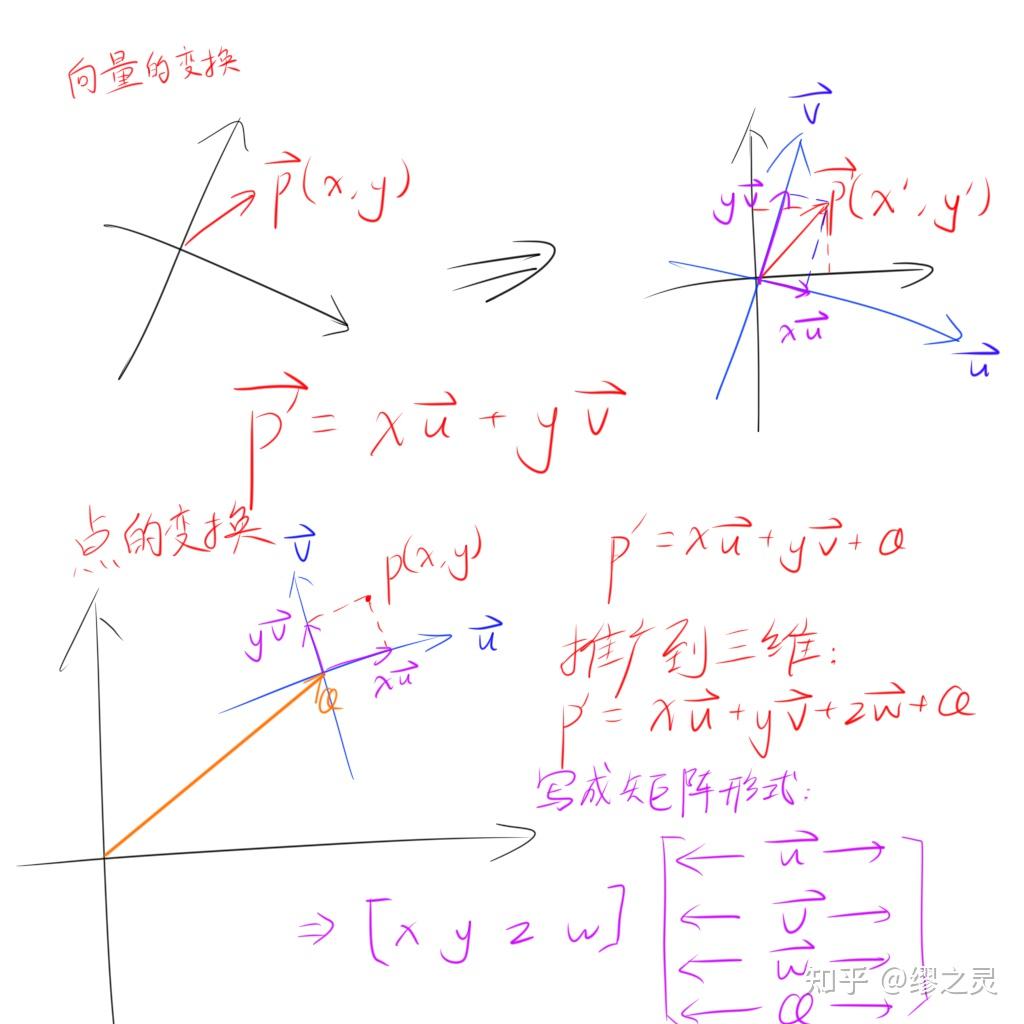 向量的变换
p⃗(x,y)
v⃗
yv⃗
p⃗(x',y')
xu⃗
u⃗
p⃗' = xu⃗ + yv⃗
点的变换
v⃗
p(x,y)
yv⃗
u⃗
xu⃗
Q
p' = xu⃗ + yv⃗ + Q
推广到三维:
p' = xu⃗ + yv⃗ + zw⃗ + Q
写成矩阵形式:
⇒ [x y z w] [← u⃗ →
← v⃗ →
← w⃗ →
← Q →]
知乎 @缪之灵